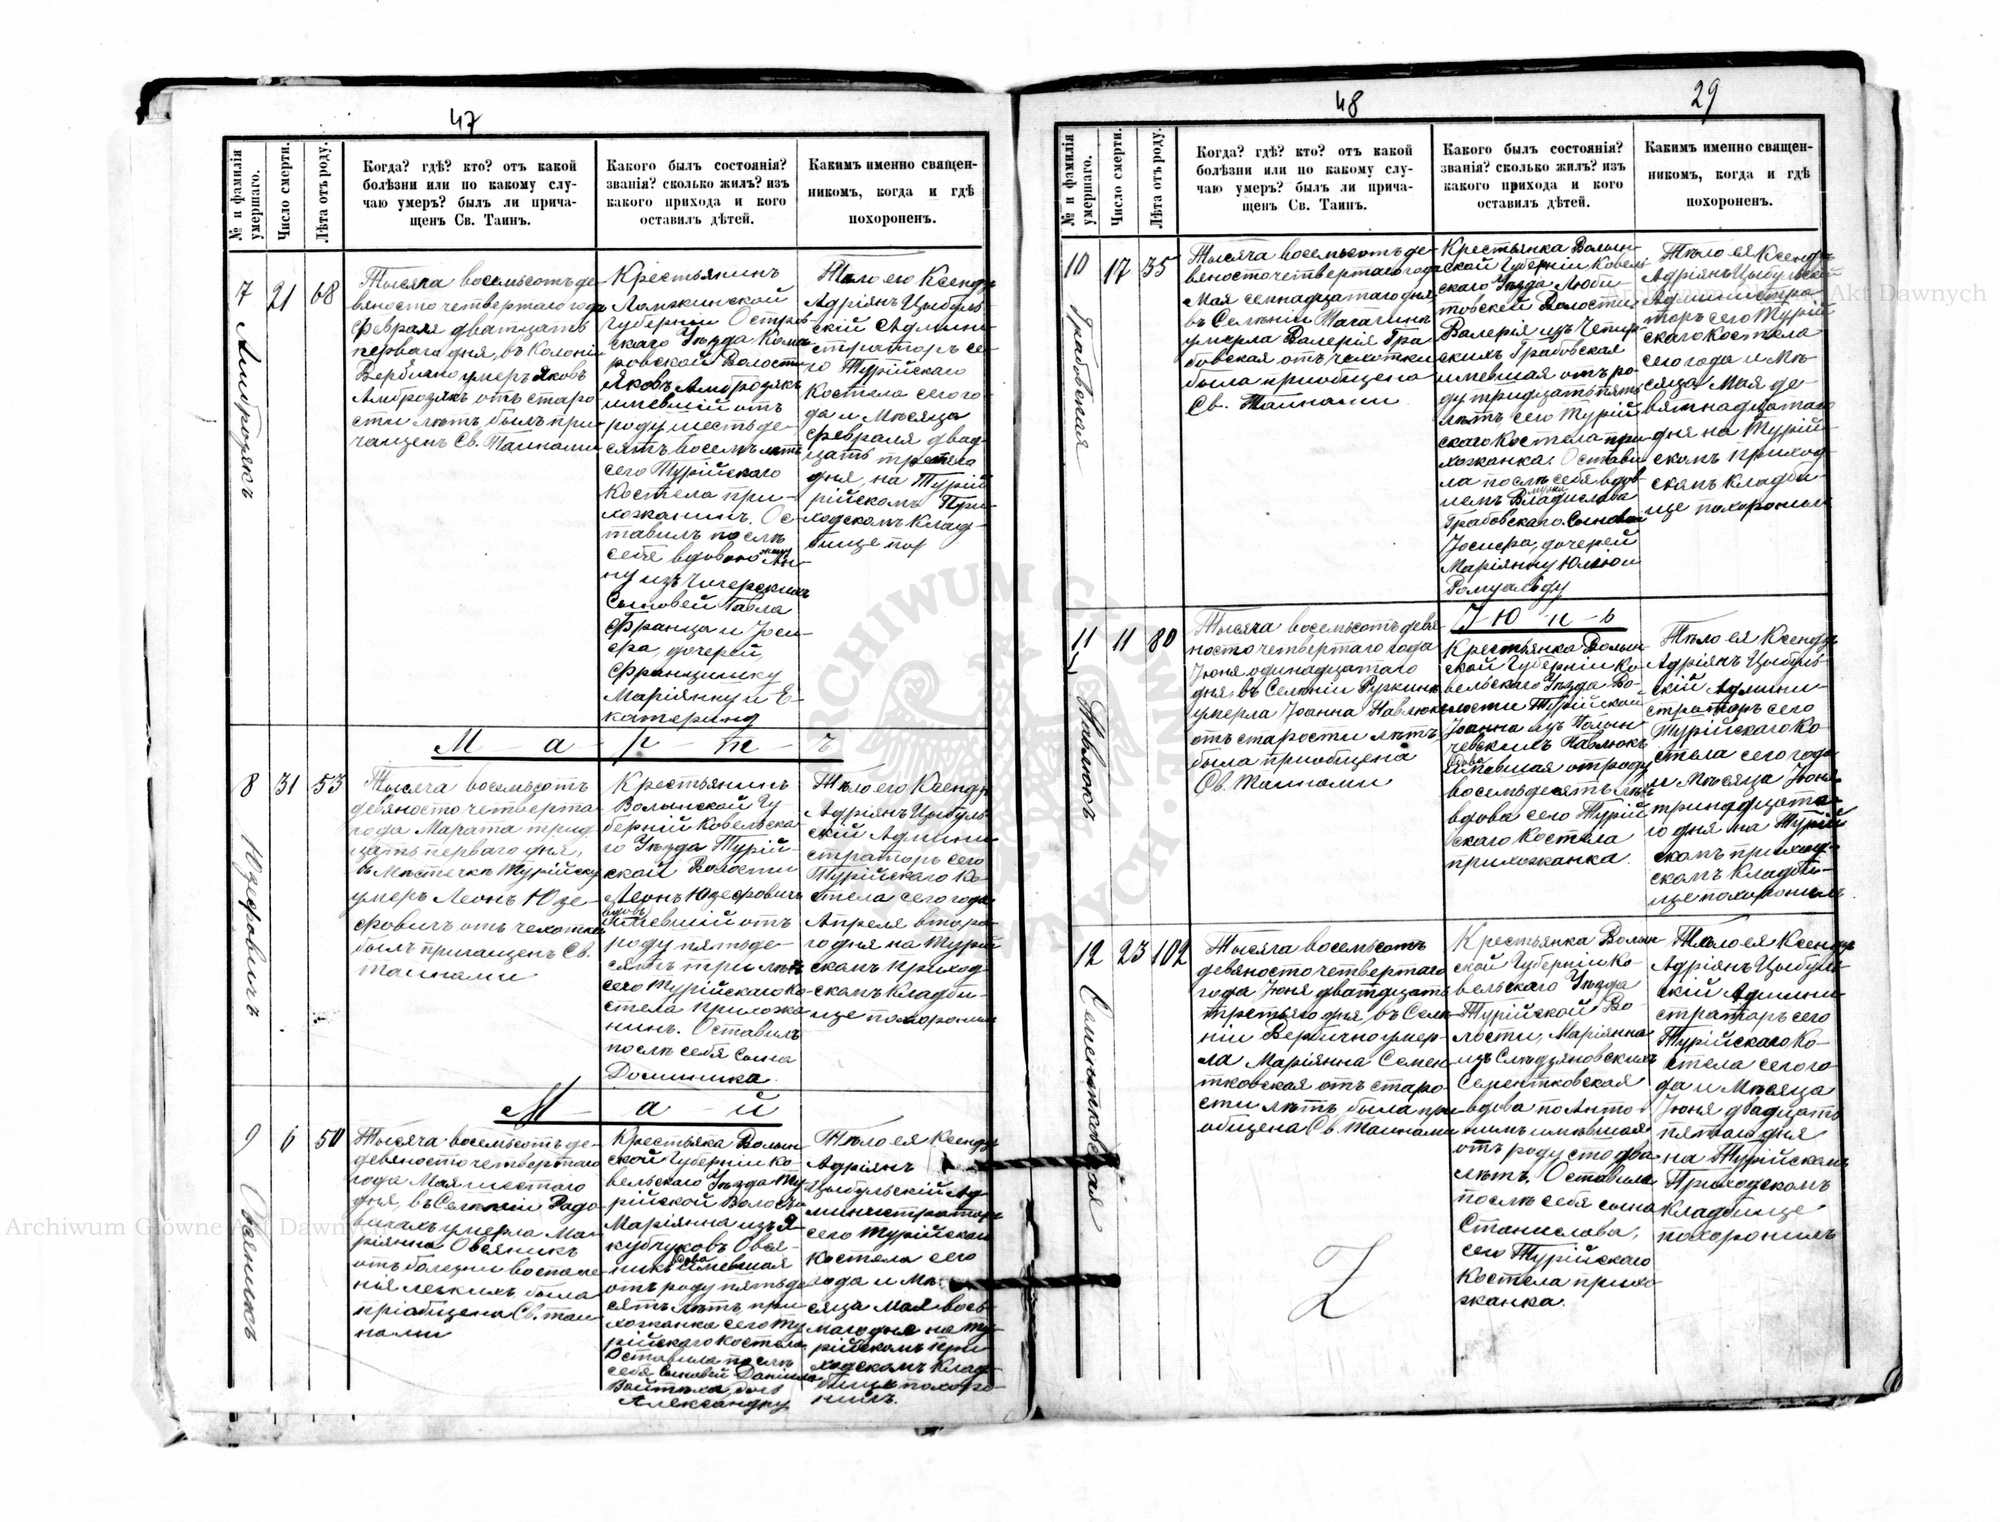 47
№ и фамилія умершаго.
Число смерти.
Лѣта отъ роду.
Когда? гдѣ? кто? отъ какой
болѣзни или по какому слу-
чаю умеръ? былъ ли прича-
щенъ Св. Таинъ.
Какого былъ состоянія?
званія? сколько жилъ? изъ
какого прихода и кого
оставилъ дѣтей.
Какимъ именно священ-
никомъ, когда и гдѣ
похороненъ.
7 Амброзякъ
21
68
Тысяча восемьсотъ де-
вяносто четвертаго года
Февраля двадцать
перваго дня, въ Колоніи
Вербично умеръ Яковъ
Амброзякъ отъ старо
сти лѣтъ былъ при
чащенъ Св. Таинами
Крестьянинъ
Ломжинской
Губерніи Остров
скаго Уѣзда Кома
ровской Волости
Яковъ Амброзякъ
имевшій отъ
роду шестьде-
сятъ восемь лѣтъ
сего Турійскаго
Костела при-
хожанинъ. Ос-
тавилъ послѣ
себя вдовою жену Ан-
ну изъ
Сыновей Павла
Франца и Іоси-
фа, дочерей,
Францишку
Маріянну и Е-
катерину
Тѣло его Ксендзъ
Адріянъ Цыбуль-
скій Админи-
страторъ се-
го Турійскаго
Костела сего го-
да и Мѣсяца
Февраля двад-
цать третяго
дня, на Турій
рійскомъ При-
ходскомъ Клад-
бище пох
М - а - р - т - ъ
8 Юзефовичъ
31
53
Тысяча восемьсотъ
девяносто четверта
года Марата трид
цать перваго дня,
въ Мѣстечкѣ Турійску
умеръ Леонъ Юзе
фовичъ отъ чехотки
былъ причащенъ Св.
таинами
Крестьянинъ
Волынской Гу
берній Ковельска
го Уѣзда Турій-
ской Волости
Леонъ Юзефовичъ
вдовъ
имевшій отъ
роду пятьде-
сятъ три лѣтъ
сего Турійскаго Ко
стела прихожа
нинъ. Оставилъ
послѣ себя сына
Доминика.
Тѣло его Ксендзъ
Адріянъ Цыбуль-
скій Админи
страторъ сего
Турійскаго Ко-
стела сего года
Апреля второ-
го дня на Турій
скомъ приход-
скомъ Кладби-
ще похоронилъ
М - а - й
9 Овсяникъ
6
50
Тысяча восемьсотъ де-
девяносто четвертаго
года Мая шестаго
дня, въ Селеніи Радо
вичахъ умерла Ма-
ріянна Овсяникъ
отъ болезни воспале
нія легкихъ была
пріобщена Св. таи
нами
Крестьяка Волын
ской Губерніи Ко-
вельскаго Уѣзда Ту
рійской Волости
Маріянна изъ Я-
кубчуковъ Овся-
никъ вдова имевшая
отъ роду пятьде
сятъ лѣтъ, при
хожанка сего Ту
рійскаго Костела
Оставила послѣ
себя Сыновей Даніила
Войтеха, доч
Александру
Тѣло ея Ксендзъ
Адріянъ
Цыбульскій Ад
министраторъ
сего Турійскаго
Костела сего
года и Мѣ-
сяца Мая вось-
маго дня на Ту-
рійскомъ при
ходскомъ Клад-
бище похоро-
нилъ.
48
29
№ и фамилія умершаго.
Число смерти.
Лѣта отъ роду.
Когда? гдѣ? кто? отъ какой
болѣзни или по какому слу-
чаю умеръ? былъ ли прича-
щенъ Св. Таинъ.
Какого былъ состоянія?
званія? сколько жилъ? изъ
какого прихода и кого
оставилъ дѣтей.
Какимъ именно священ-
никомъ, когда и гдѣ
похороненъ.
10 Грабовская
17
35
Тысяча восемьсотъ де-
вяносто четвертаго года
Мая семнадцатаго дня
въ Селеніи Тагачинъ
умерла Валерія Гра
бовская отъ чехотки
была приобщена
Св. Таинами
Крестьянка Волын-
ской Губерніи Ковель
скаго Уѣзда Люби
товской Волости
Валерія изъ
скихъ Грабовская
имевшая отъ ро-
ду тридцать пять
лѣтъ, сего Турій
скаго Костела при
хожанка. Остави
ла послѣ себя вдов
цемъ мужа Владислава
Грабовскаго. Сыновей
Іосифа, дочерей
Маріянну Юлію и
Ромуальду
Тѣло ея Ксендзъ
Адріянъ Цыбульскій
Администра-
торъ сего Турій
скаго Костела
сего года и Мѣ-
сяца Мая де-
вятнадцатаго
дня на Турій-
скомъ приход-
скомъ Кладби-
ще похоронилъ
І - Ю - н - ь
11 Павлюкъ
11
80
Тысяча восемьсотъ девя
носто четвертаго года
Іюня одинадцатаго
дня, въ Селеніи Ружинъ
умерла Іоанна Павлюкъ
отъ старости лѣтъ
была приобщена
Св. Таинами
Крестьянка Волын
ской Губерніи Ко-
вельскаго Уѣзда Во-
лости Турійской
Іоанна изъ
Павлюкъ
вдова
имевшая отъ роду
восемьдесятъ лѣтъ
вдова сего Турій
скаго Костела
прихожанка.
Тѣло ея Ксендзъ
Адріянъ Цыбуль-
скій Админи-
страторъ сего
Турійскаго Ко-
стела сего года
и Мѣсяца Іюня
тринадцата-
го дня на Турій
скомъ приход-
скомъ Кладби-
ще похоронилъ
12 Сементковская
23
102
Тысяча восемьсотъ
девяносто четвертаго
года Іюня двадцать
третьяго дня, въ Селе
ніи Вербично умер-
ла Маріянна Семен
тковская отъ старо
сти лѣтъ, была при
общена Св. Таинами
Крестьянка Волын
ской Губерніи Ко-
вельскаго Уѣзда
Турійской Во
лости, Маріянна
изъ
Сементковская
вдова по Анто-
нимъ имѣвшая
отъ роду сто два
лѣтъ. Оставила
послѣ себя сына
Станислова,
сего Турійскаго
Костела прихо
жанка.
Тѣло ея Ксендзъ
Адріянъ Цыбуль
скій Админи
страторъ сего
Турійскаго Ко-
стела сего го-
да и Мѣсяца
Іюня двадцать
пятаго дня
на Турійскомъ
Приходскомъ
Кладбище
похоронилъ
Archiwum Główne Akt Dawnych
Archiwum Główne Akt Dawnych
ARCHIWUM GŁÓWNE AKT DAWNYCH